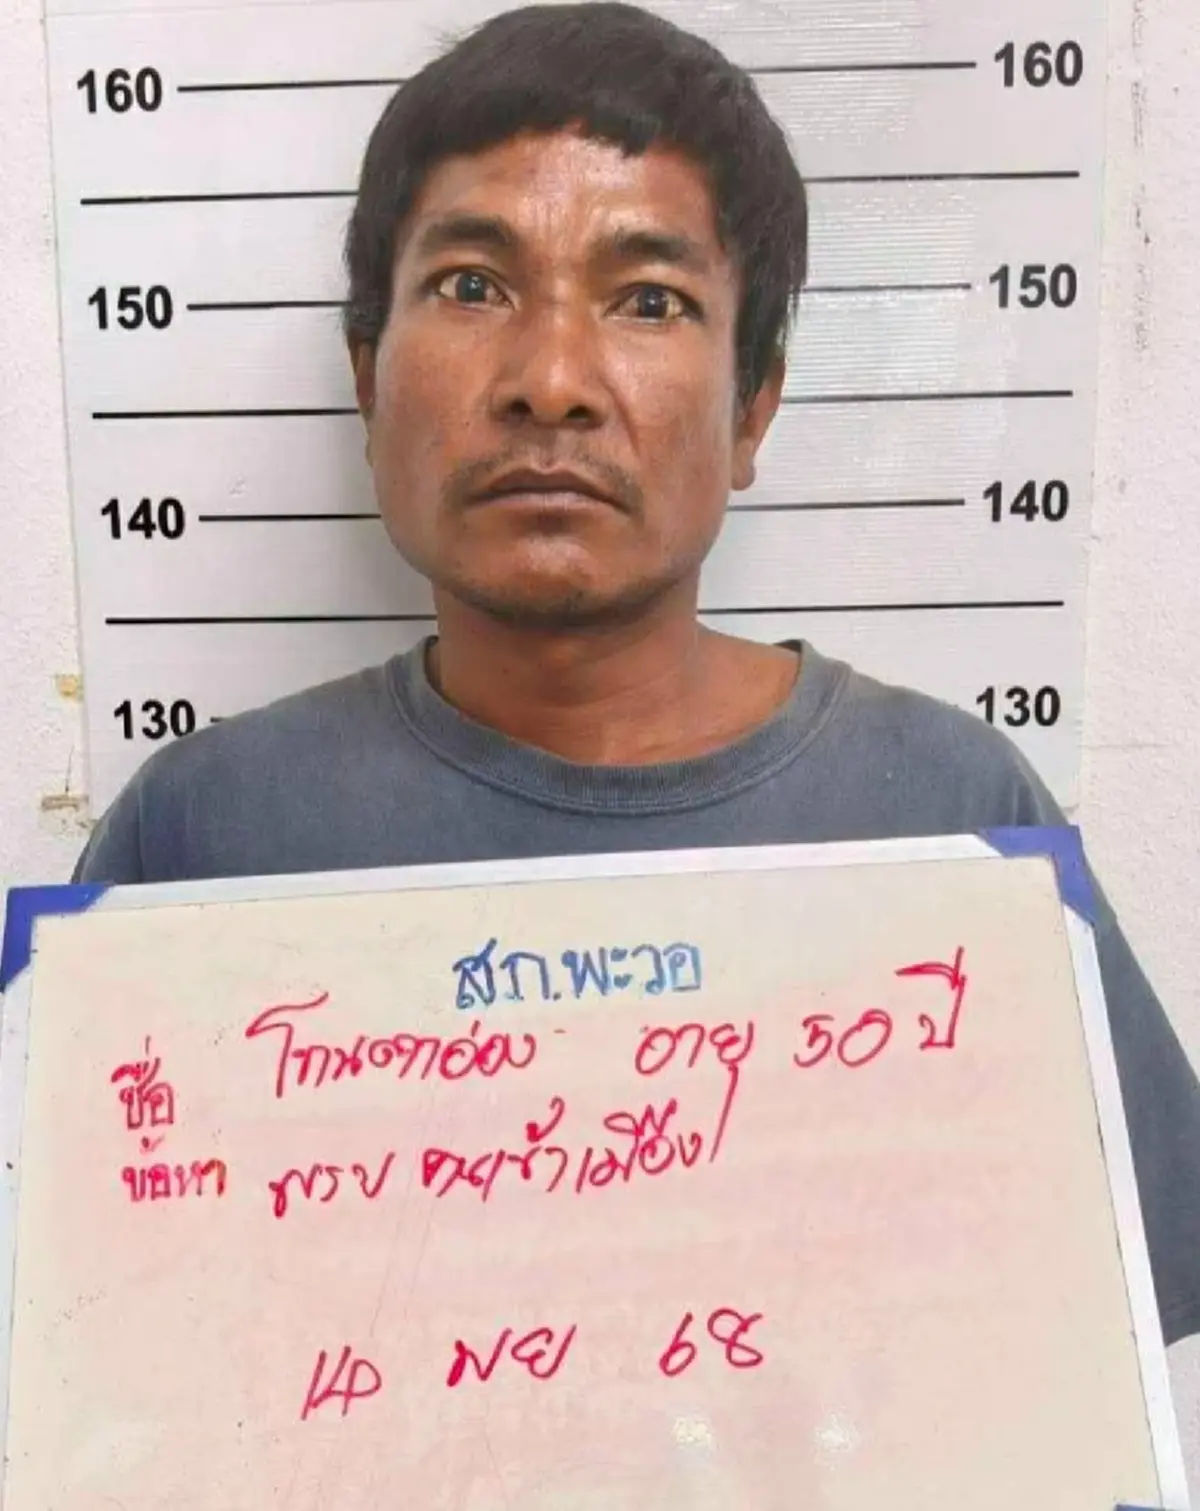 160 160
150 150
140 140
130 130
สภ.พะวอ
ชื่อ โทนตาอ่อง อายุ 50 ปี
ข้อหา พรบ คนเข้าเมือง
14 พย 68